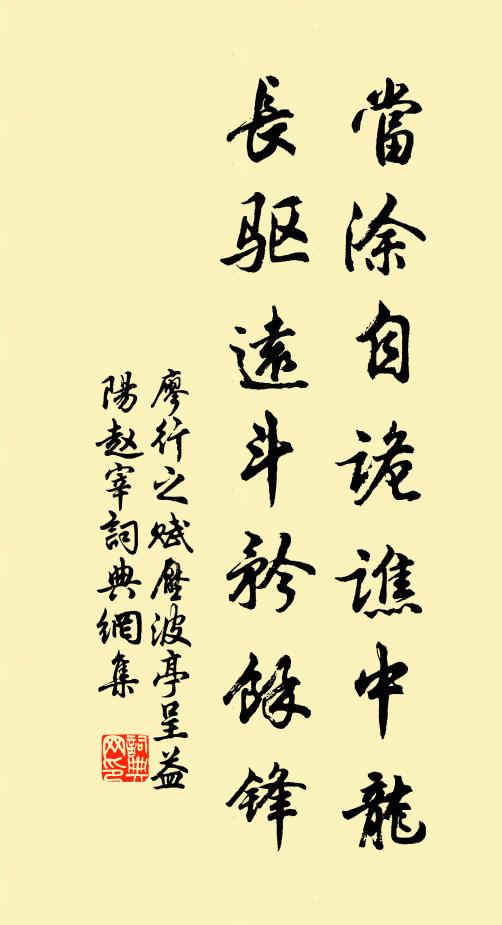 當涂自詭譙中龍
長驱遠斗矜餘锋
廖行之賦壓波亭呈益
陽赵宰詞典網集
詞典网印